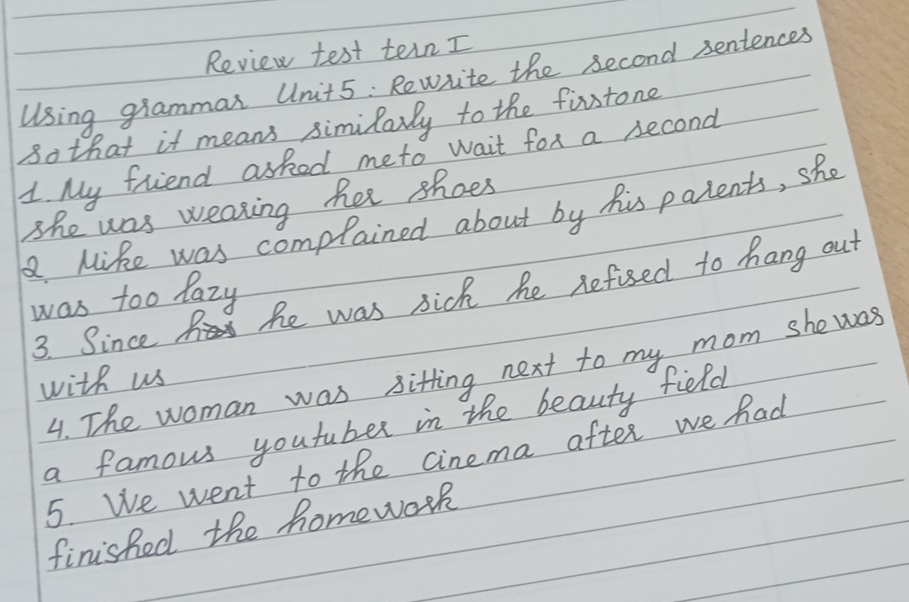 Review test tern I
Using grammar Unit 5 : Rewrite the second sentences
so that it means similarly to the firstone
1. My friend asked me to wait for a second
she was wearing her shoes
2. Mike was complained about by his parents, she
was too lazy
3. Since has he was sick he refised to hang out
with us
4. The woman was sitting next to my mom she was
a famous youtuber in the beauty field
5. We went to the cinema after we had
finished the homework